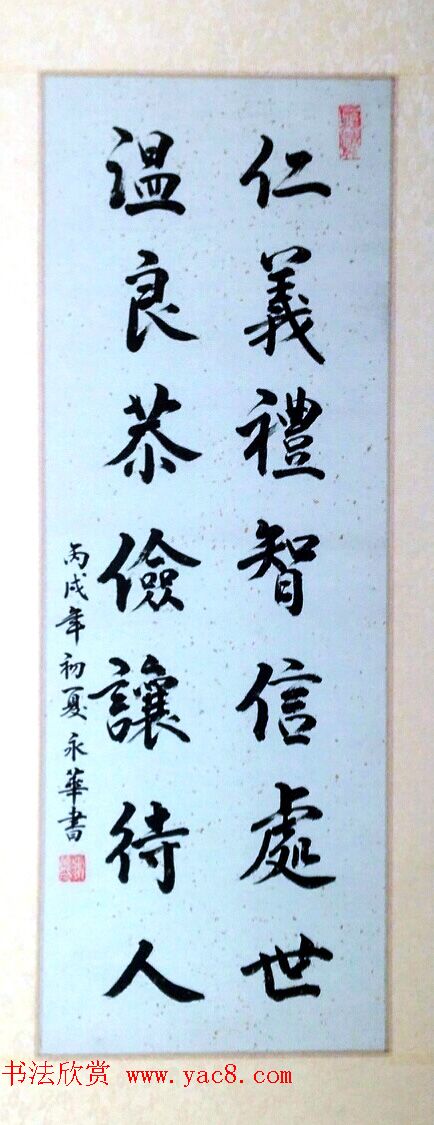 仁義禮智信處世
温良恭儉讓待人
丙戌年初夏永華書
书法欣赏 www.yac8.com